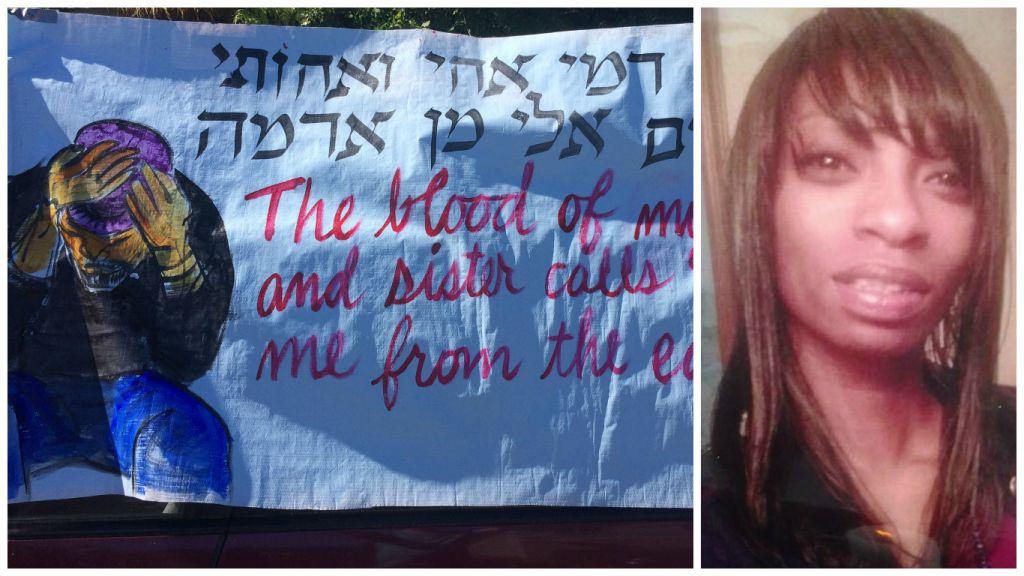 דמי אחי ואחותי
אלי מן אדמה
The blood of
and sister calls
me from the